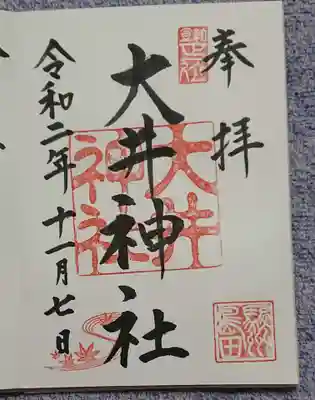 奉拝
大井神社
大井
神社
令和二年十一月七日